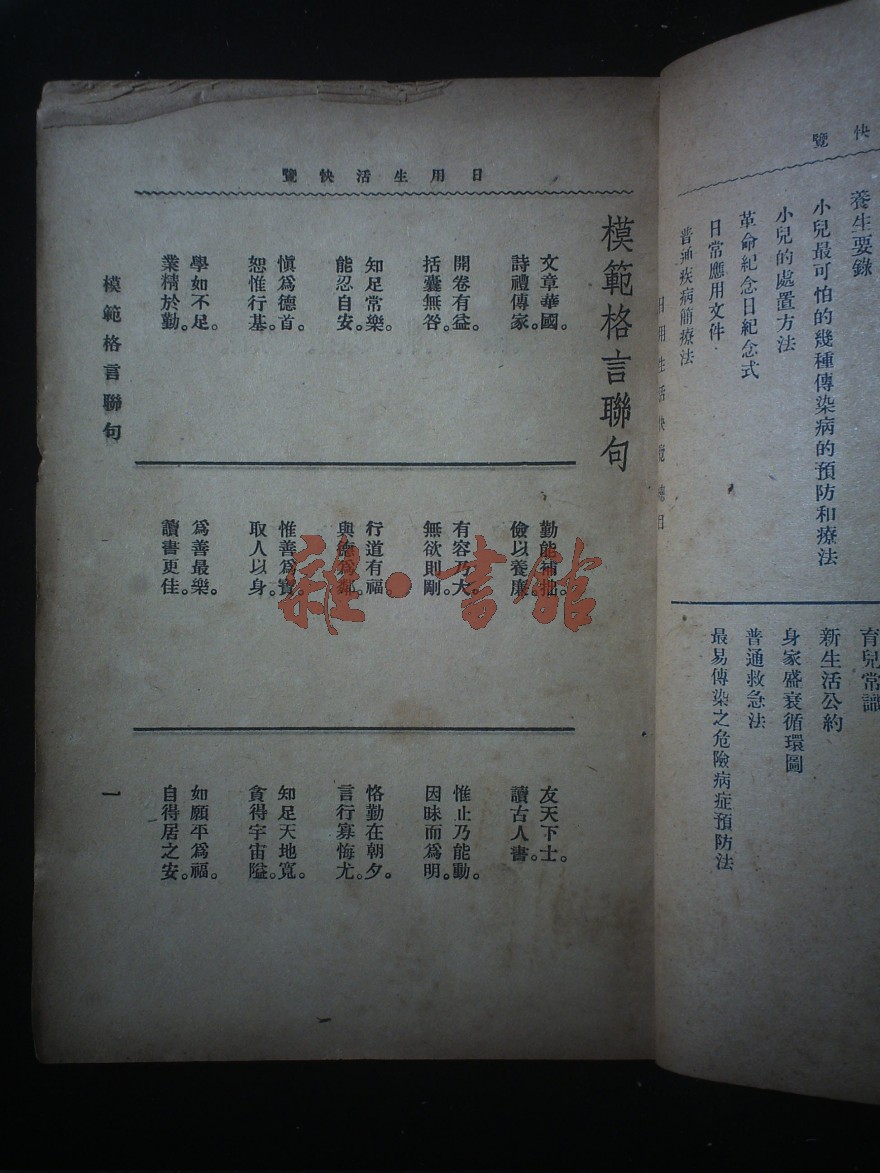 快覽
養生要錄
小兒最可怕的幾種傳染病的預防和療法
小兒的處置方法
革命紀念日紀念式
日常應用文件
普通疾病簡療法
日用生活快覽總目
育兒常識
新生活公約
身家盛衰循環圖
普通救急法
最易傳染之危險病症預防法
日用生活快覽
模範格言聯句
文章華國。
詩禮傳家。
開卷有益。
括囊無咎。
知足常樂。
能忍自安。
愼爲德首。
恕惟行基。
學如不足。
業精於勤。
勤能補拙。
儉以養廉。
有容乃大。
無欲則剛。
行道有福。
與德爲鄰。
惟善爲寶。
取人以身。
爲善最樂。
讀書更佳。
友天下士。
讀古人書。
惟止乃能動。
因昧而爲明。
恪勤在朝夕。
言行寡悔尤。
知足天地寬。
貪得宇宙隘。
如願平爲福。
自得居之安。
模範格言聯句
一
雜·書館